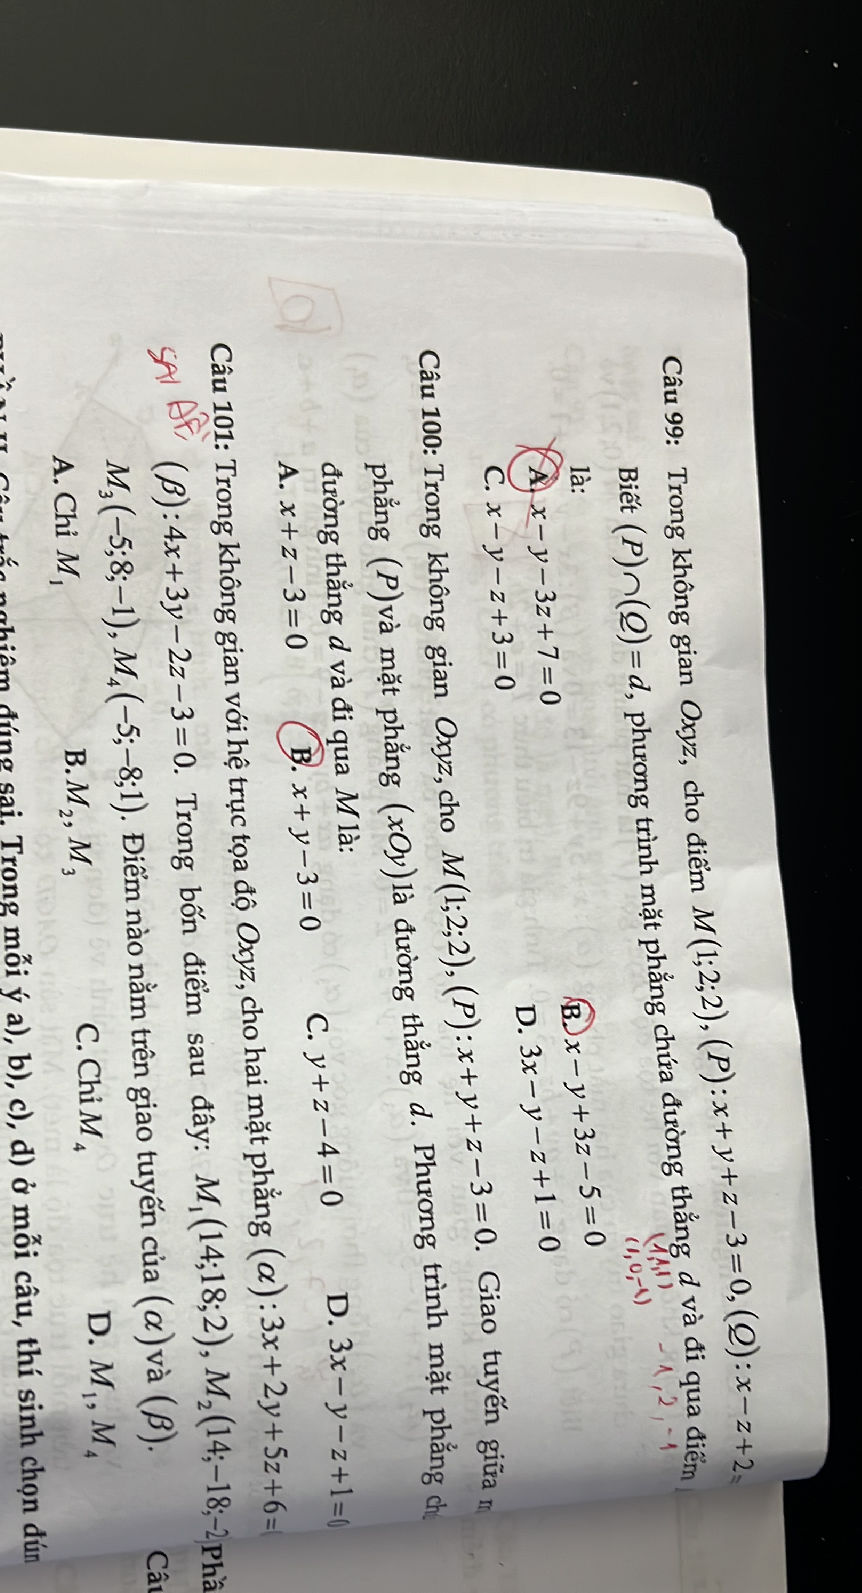 Câu 99: Trong không gian Oxyz, cho điểm M(1;2;2), (P): x+y+z−3=0, (Q): x−z+2=
Biết (P)∩(Q)=d, phương trình mặt phẳng chứa đường thẳng d và đi qua điểm
(1,1,1) -1, 2, -1
(1,0,-1)
là:
A. x−y−3z+7=0 B. x−y+3z−5=0
C. x−y−z+3=0 D. 3x−y−z+1=0
Câu 100: Trong không gian Oxyz, cho M(1;2;2), (P): x+y+z−3=0. Giao tuyến giữa m
phẳng (P) và mặt phẳng (xOy) là đường thẳng d. Phương trình mặt phẳng ch
đường thẳng d và đi qua M là:
A. x+z−3=0 B. x+y−3=0 C. y+z−4=0 D. 3x−y−z+1=0
Câu 101: Trong không gian với hệ trục tọa độ Oxyz, cho hai mặt phẳng (α): 3x+2y+5z+6=
SAI ĐỀ
(β): 4x+3y−2z−3=0. Trong bốn điểm sau đây: M₁(14;18;2), M₂(14;−18;−2
M₃(−5;8;−1), M₄(−5;−8;1). Điểm nào nằm trên giao tuyến của (α) và (β).
A. Chỉ M₁ B. M₂, M₃ C. Chỉ M₄ D. M₁, M₄
nghiệm đúng sai. Trong mỗi ý a), b), c), d) ở mỗi câu, thí sinh chọn đún
Phầ
Câu